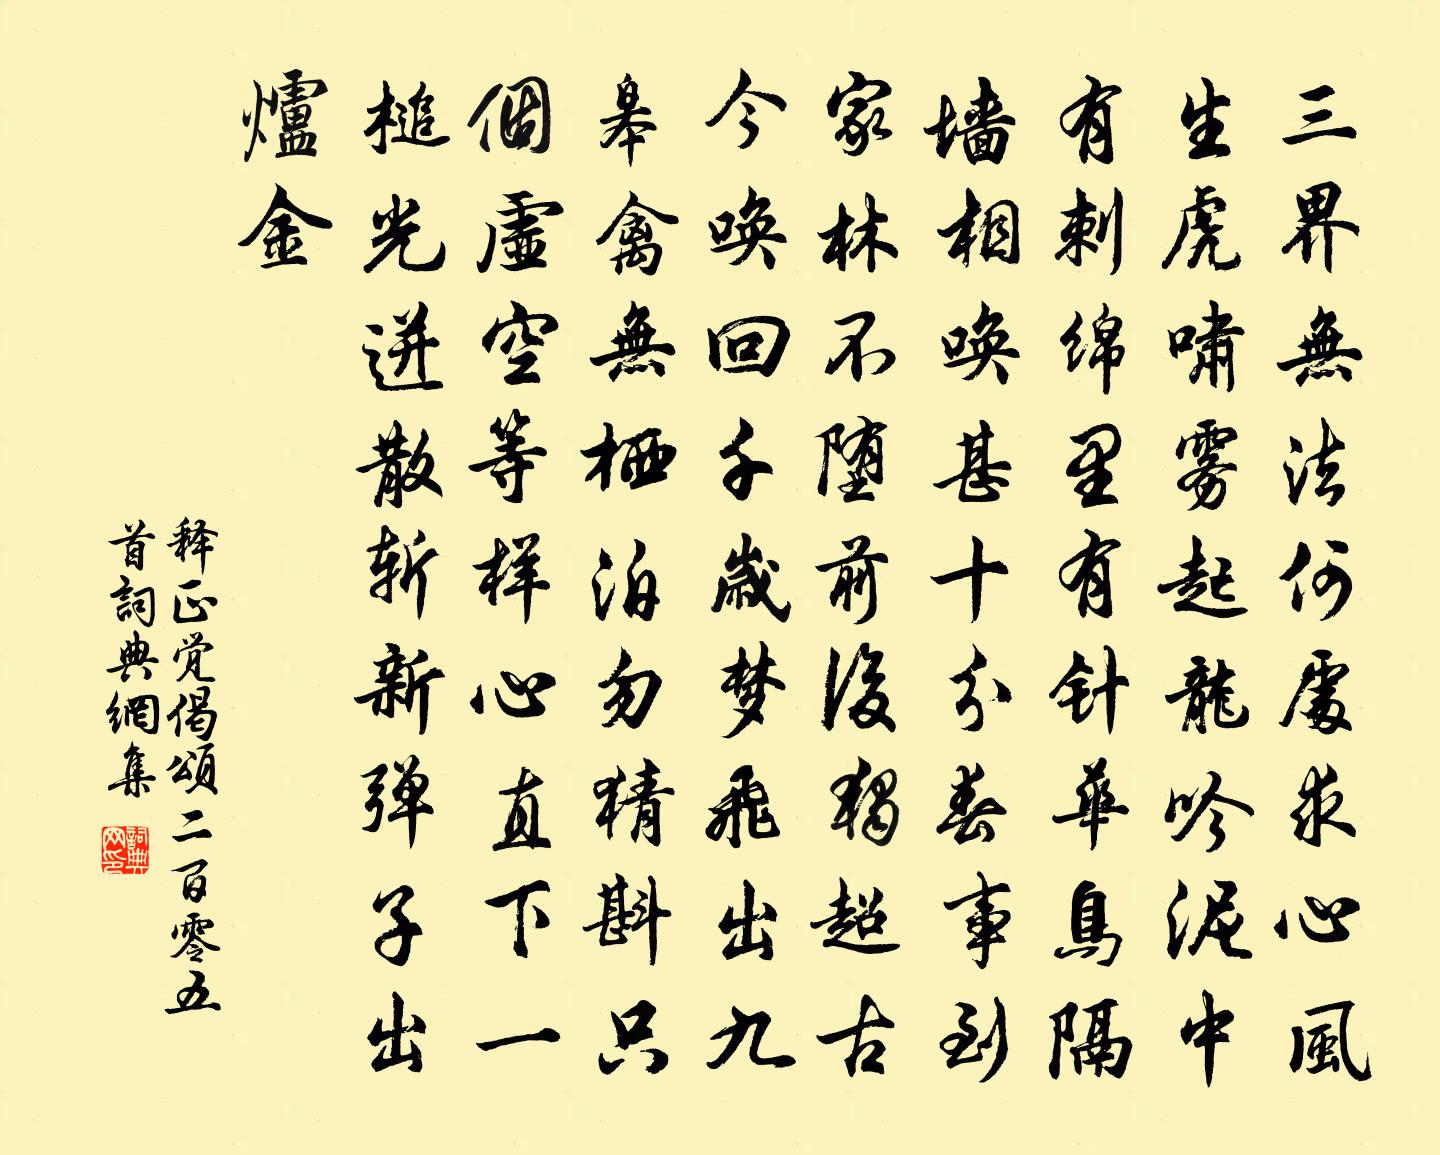 三界無法何處求心風
生虎嘯雾起龍吟泥中
有刺绵里有针華鳥隔
墙相唤甚十分春事到
家林不堕前後獨超古
今唤回千歲梦飛出九
皋禽無栖泊勿猜斟只
個虛空等样心直下一
槌光迸散斩新弹子出
爐金
释正觉偈頌二百零五
首詞典網集
詞典网印